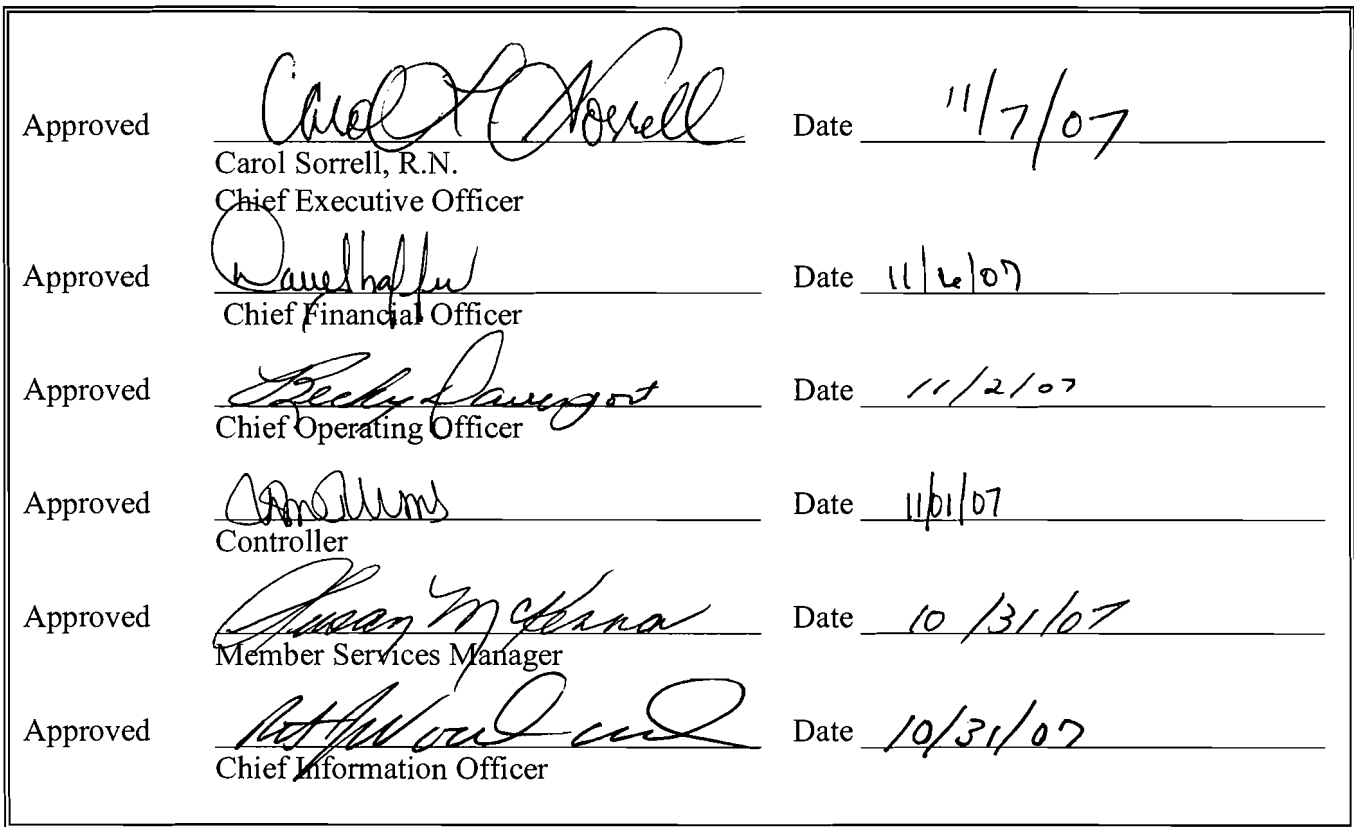 Approved Carol Sorrell Date 11/7/07
Carol Sorrell, R.N.
Chief Executive Officer
Approved Dave Shaffer Date 11/6/07
Chief Financial Officer
Approved Becky Davenport Date 11/2/07
Chief Operating Officer
Approved Date 11/01/07
Controller
Approved Susan McKenna Date 10/31/07
Member Services Manager
Approved Date 10/31/07
Chief Information Officer